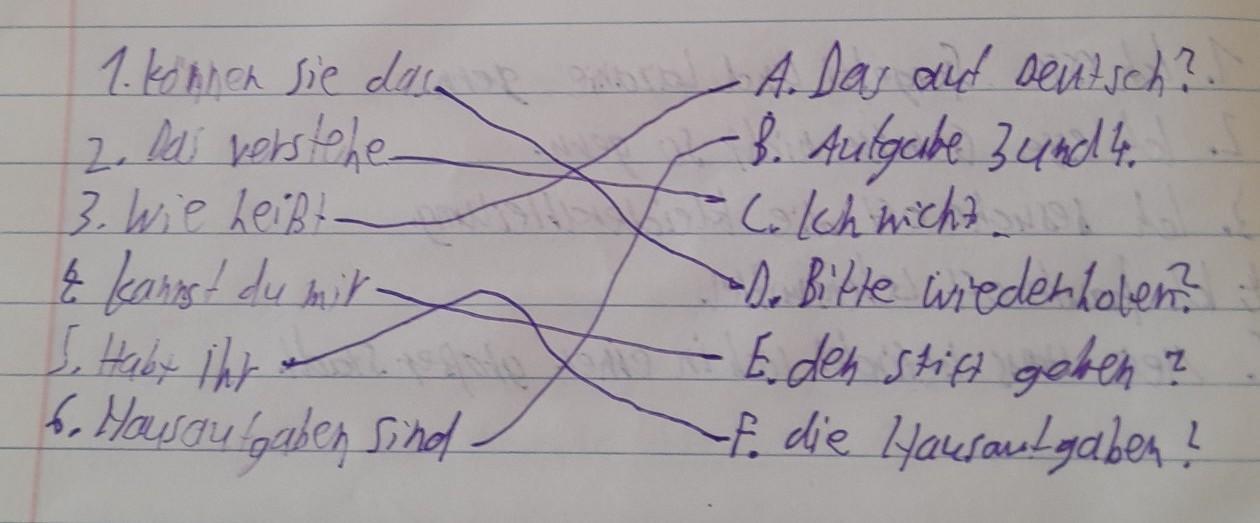 1. können sie das A. Das auf Deutsch?
2. Das verstehe B. Aufgabe 3 und 4.
3. Wie heißt C. Ich nicht.
4. kannst du mir D. Bitte wiederholen?
5. Habt ihr E. den stift geben?
6. Hausaufgaben sind F. die Hausaufgaben?